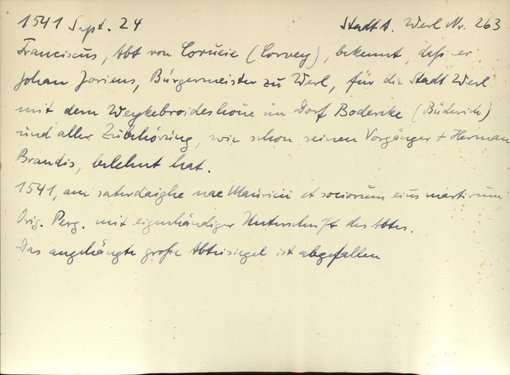 1541 Sept. 24 Stadt A. Werl Nr. 263
Franciscus, Abt von Corveie (Corvey), bekennt, daß er
Johan Joriens, Bürgermeister zu Werl, für die Stadt Werl
mit dem Weykebroideshoue im Dorf Boderike (Büderich)
und aller Zubehörung, wie schon seinen Vorgänger + Herman
Brandis, belehnt hat.
1541, am saterdaighe nae Mauricii et sociorum eius martirum
Orig. Perg. mit eigenhändiger Unterschrift des Abtes.
Das angehängte große Abteisiegel ist abgefallen